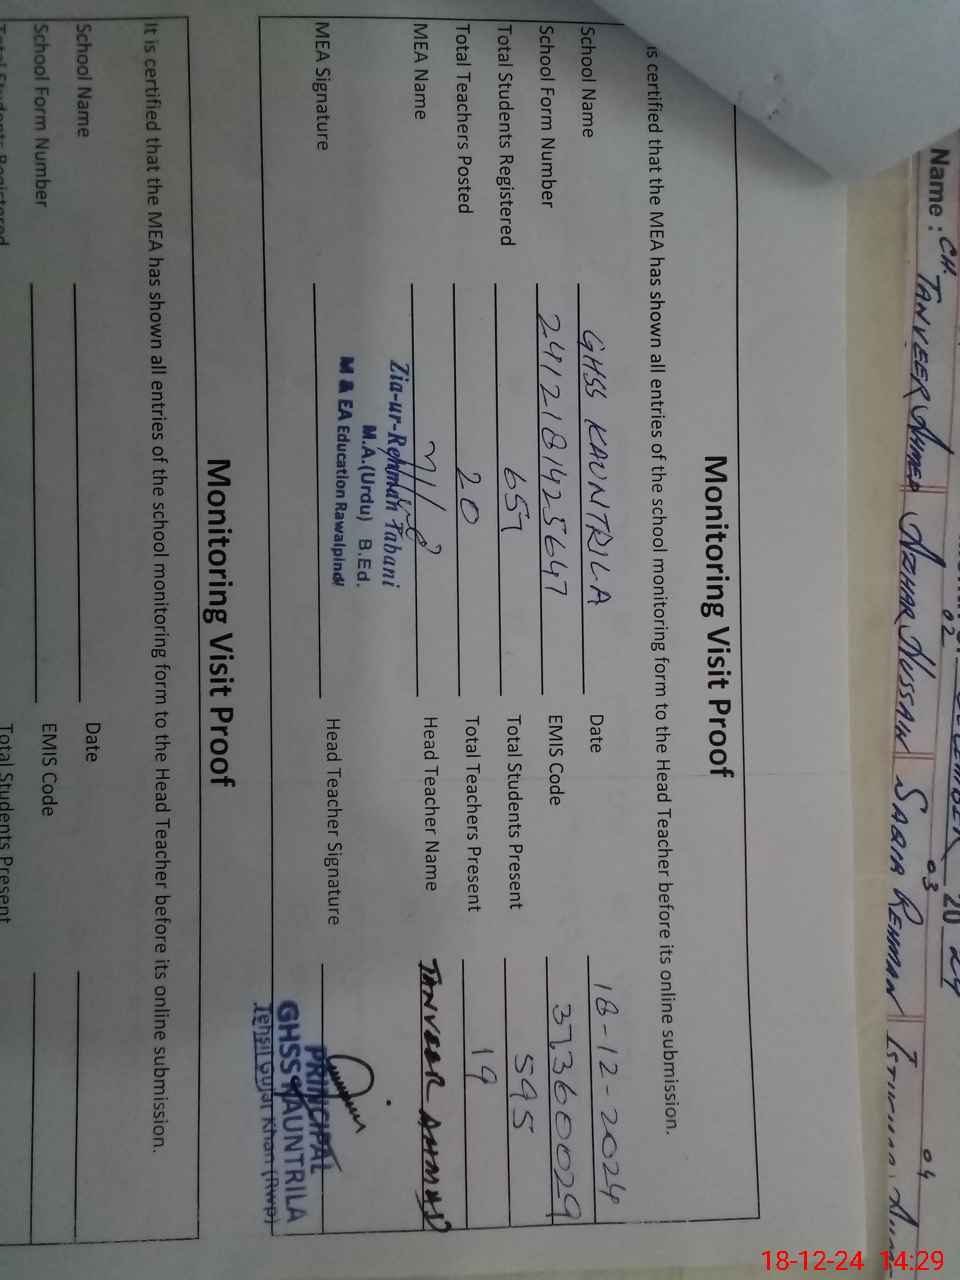 Name : CH. TANVEER AHMED AZHAR HUSSAIN SAQIB REHMAN
02 03 04
20 24
Monitoring Visit Proof
is certified that the MEA has shown all entries of the school monitoring form to the Head Teacher before its online submission.
School Name GHSS KAUNTRILA Date 18-12-2024
School Form Number 2412181425647 EMIS Code 37360029
Total Students Registered 657 Total Students Present 595
Total Teachers Posted 20 Total Teachers Present 19
MEA Name Head Teacher Name TANVEER AHMAD
Zia-ur-Rehman Tabani
M.A.(Urdu) B.Ed.
M & EA Education Rawalpindi
MEA Signature Head Teacher Signature
PRINCIPAL
GHSS KAUNTRILA
Tehsil Gujar Khan (Rwp)
Monitoring Visit Proof
It is certified that the MEA has shown all entries of the school monitoring form to the Head Teacher before its online submission.
School Name Date
School Form Number EMIS Code
Total Students Registered Total Students Present
18-12-24 14:29